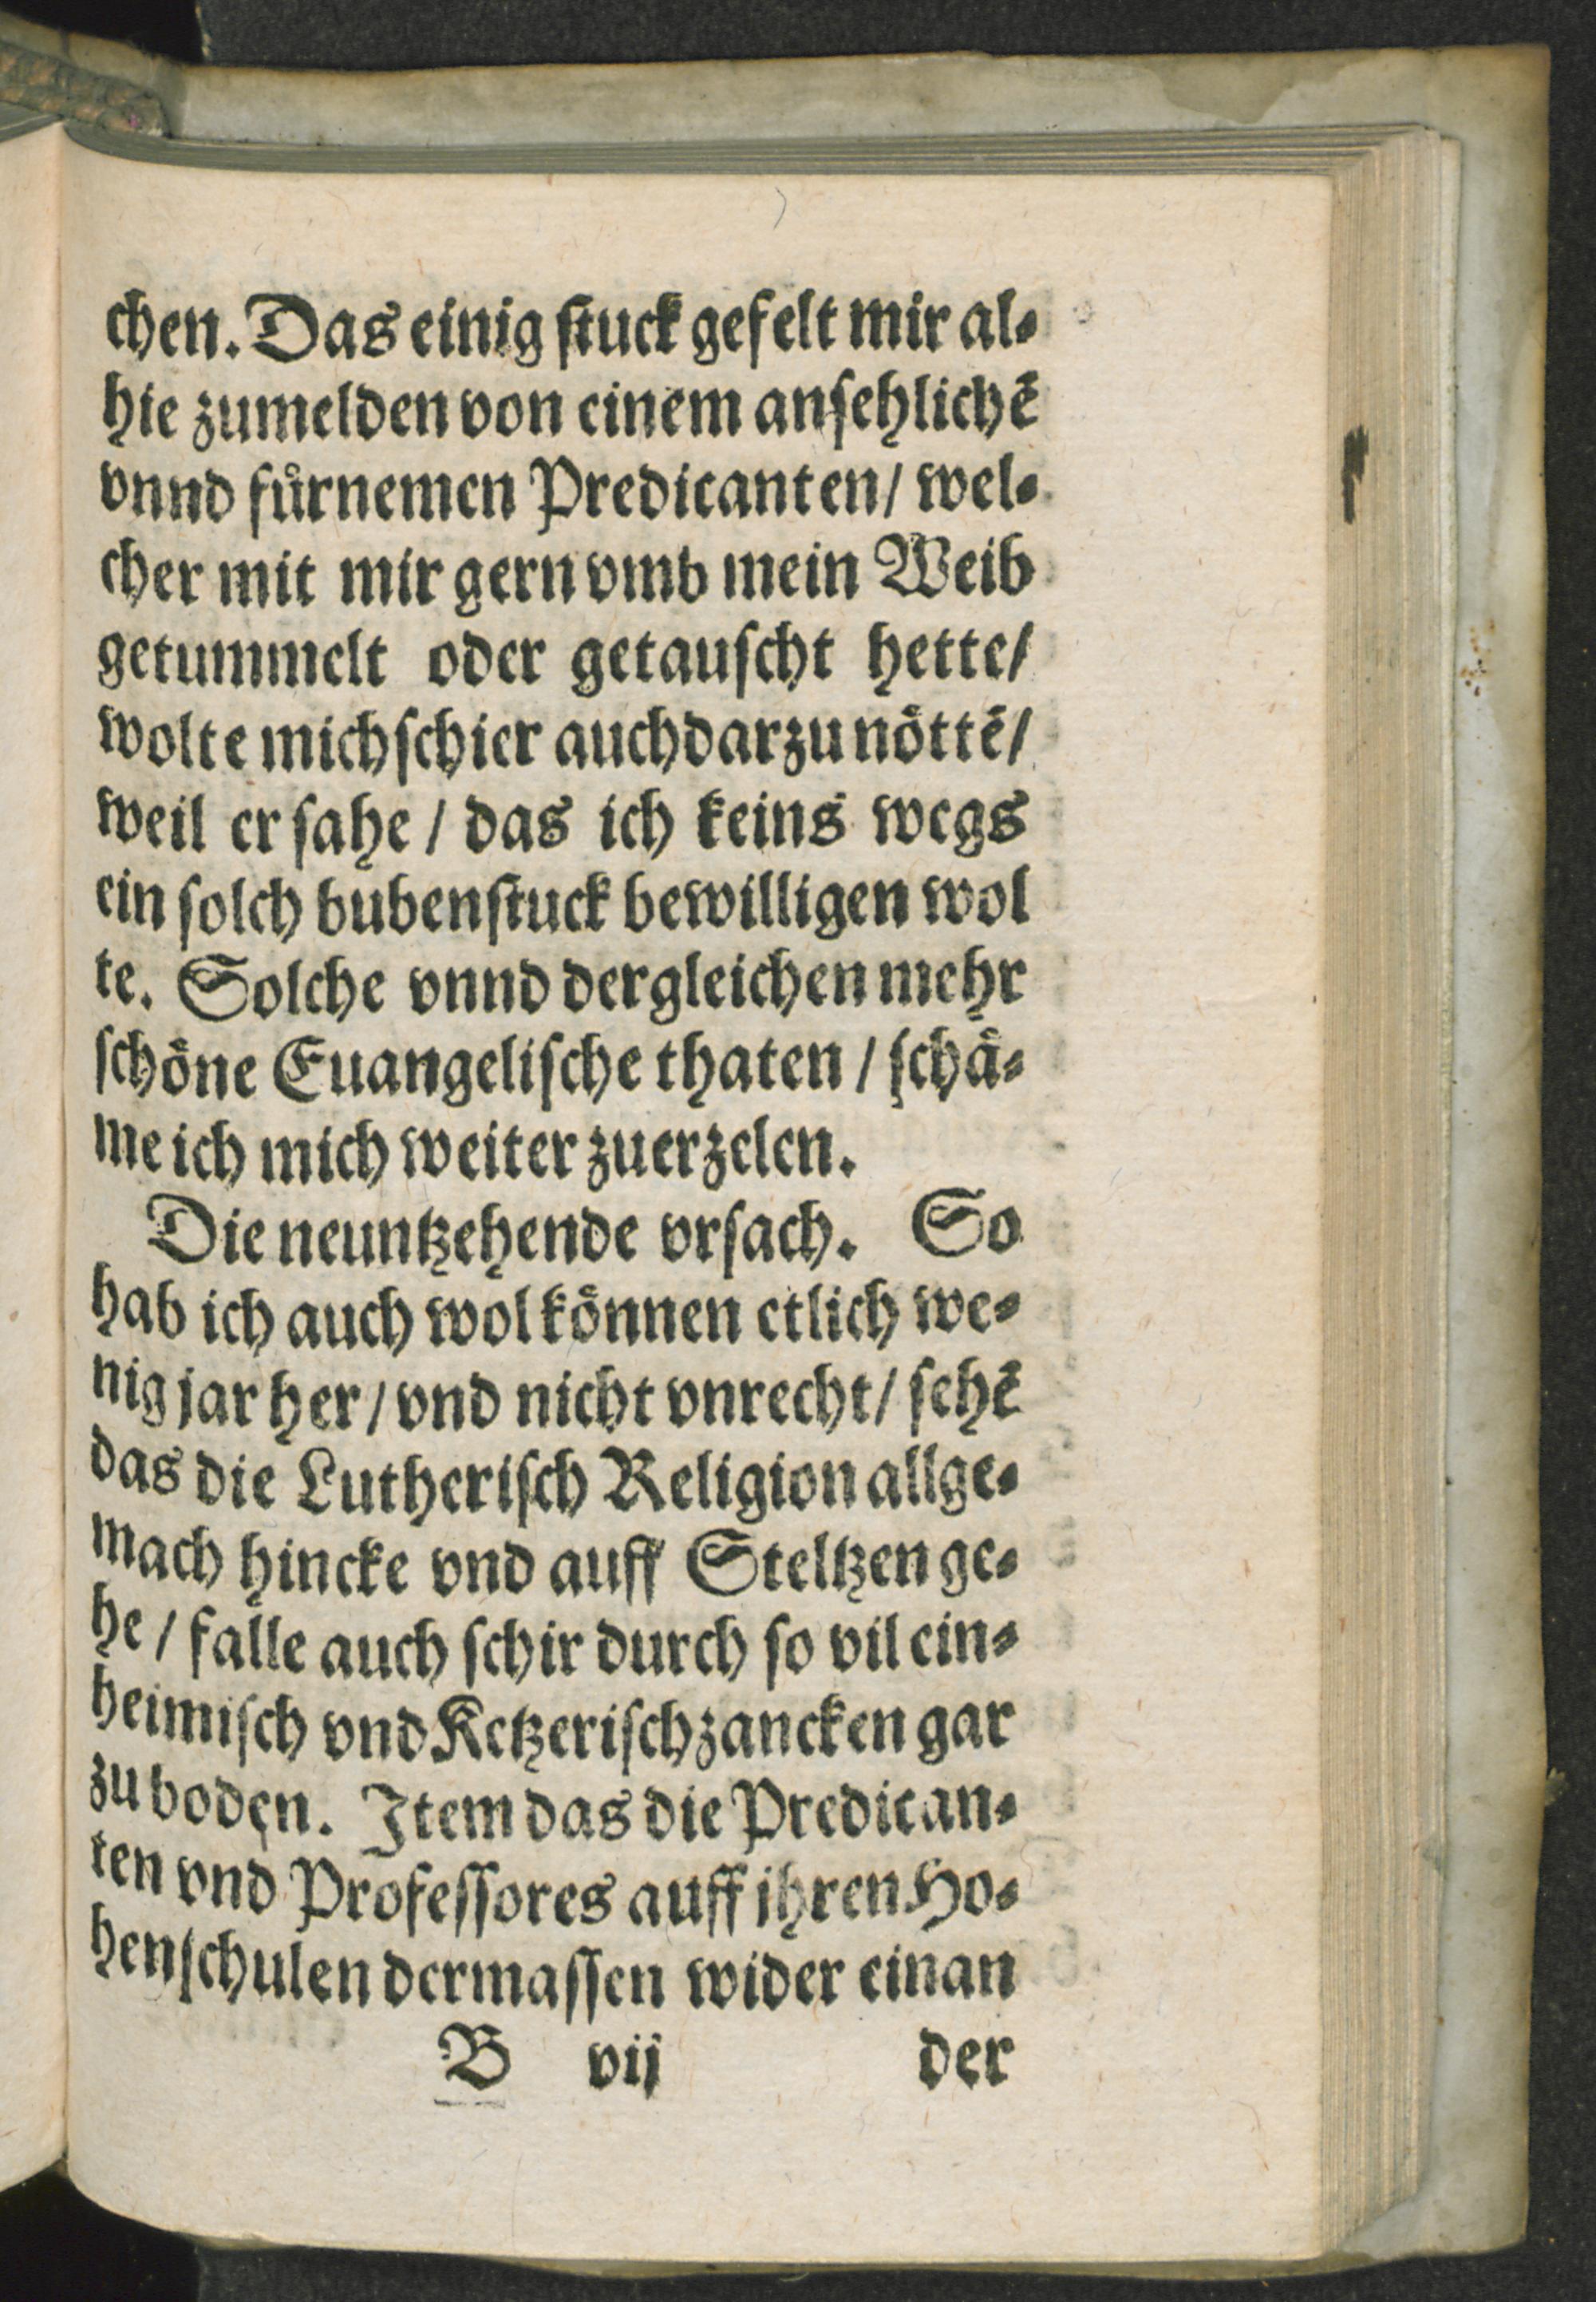 chen. Das einig stuck gefelt mir al⸗
hie zumelden von einem ansehlichē
vnnd fuͤrnemen Predicanten/ wel⸗
cher mit mir gern vmb mein Weib
getummelt oder getauscht hette/
wolte mich schier auch darzu noͤttē/
weil er sahe / das ich keins wegs
ein solch bubenstuck bewilligen wol
te. Solche vnnd dergleichen mehr
schoͤne Euangelische thaten / schaͤ⸗
me ich mich weiter zuerzelen.
Die neuntzehende vrsach. So
hab ich auch wol koͤnnen etlich we⸗
nig jar her / vnd nicht vnrecht/ sehē
das die Lutherisch Religion allge⸗
mach hincke vnd auff Steltzen ge⸗
he / falle auch schir durch so vil ein⸗
heimisch vnd Ketzerisch zancken gar
zu boden. Item das die Predican⸗
ten vnd Professores auff ihren Ho⸗
henschulen dermassen wider einan
B vij der